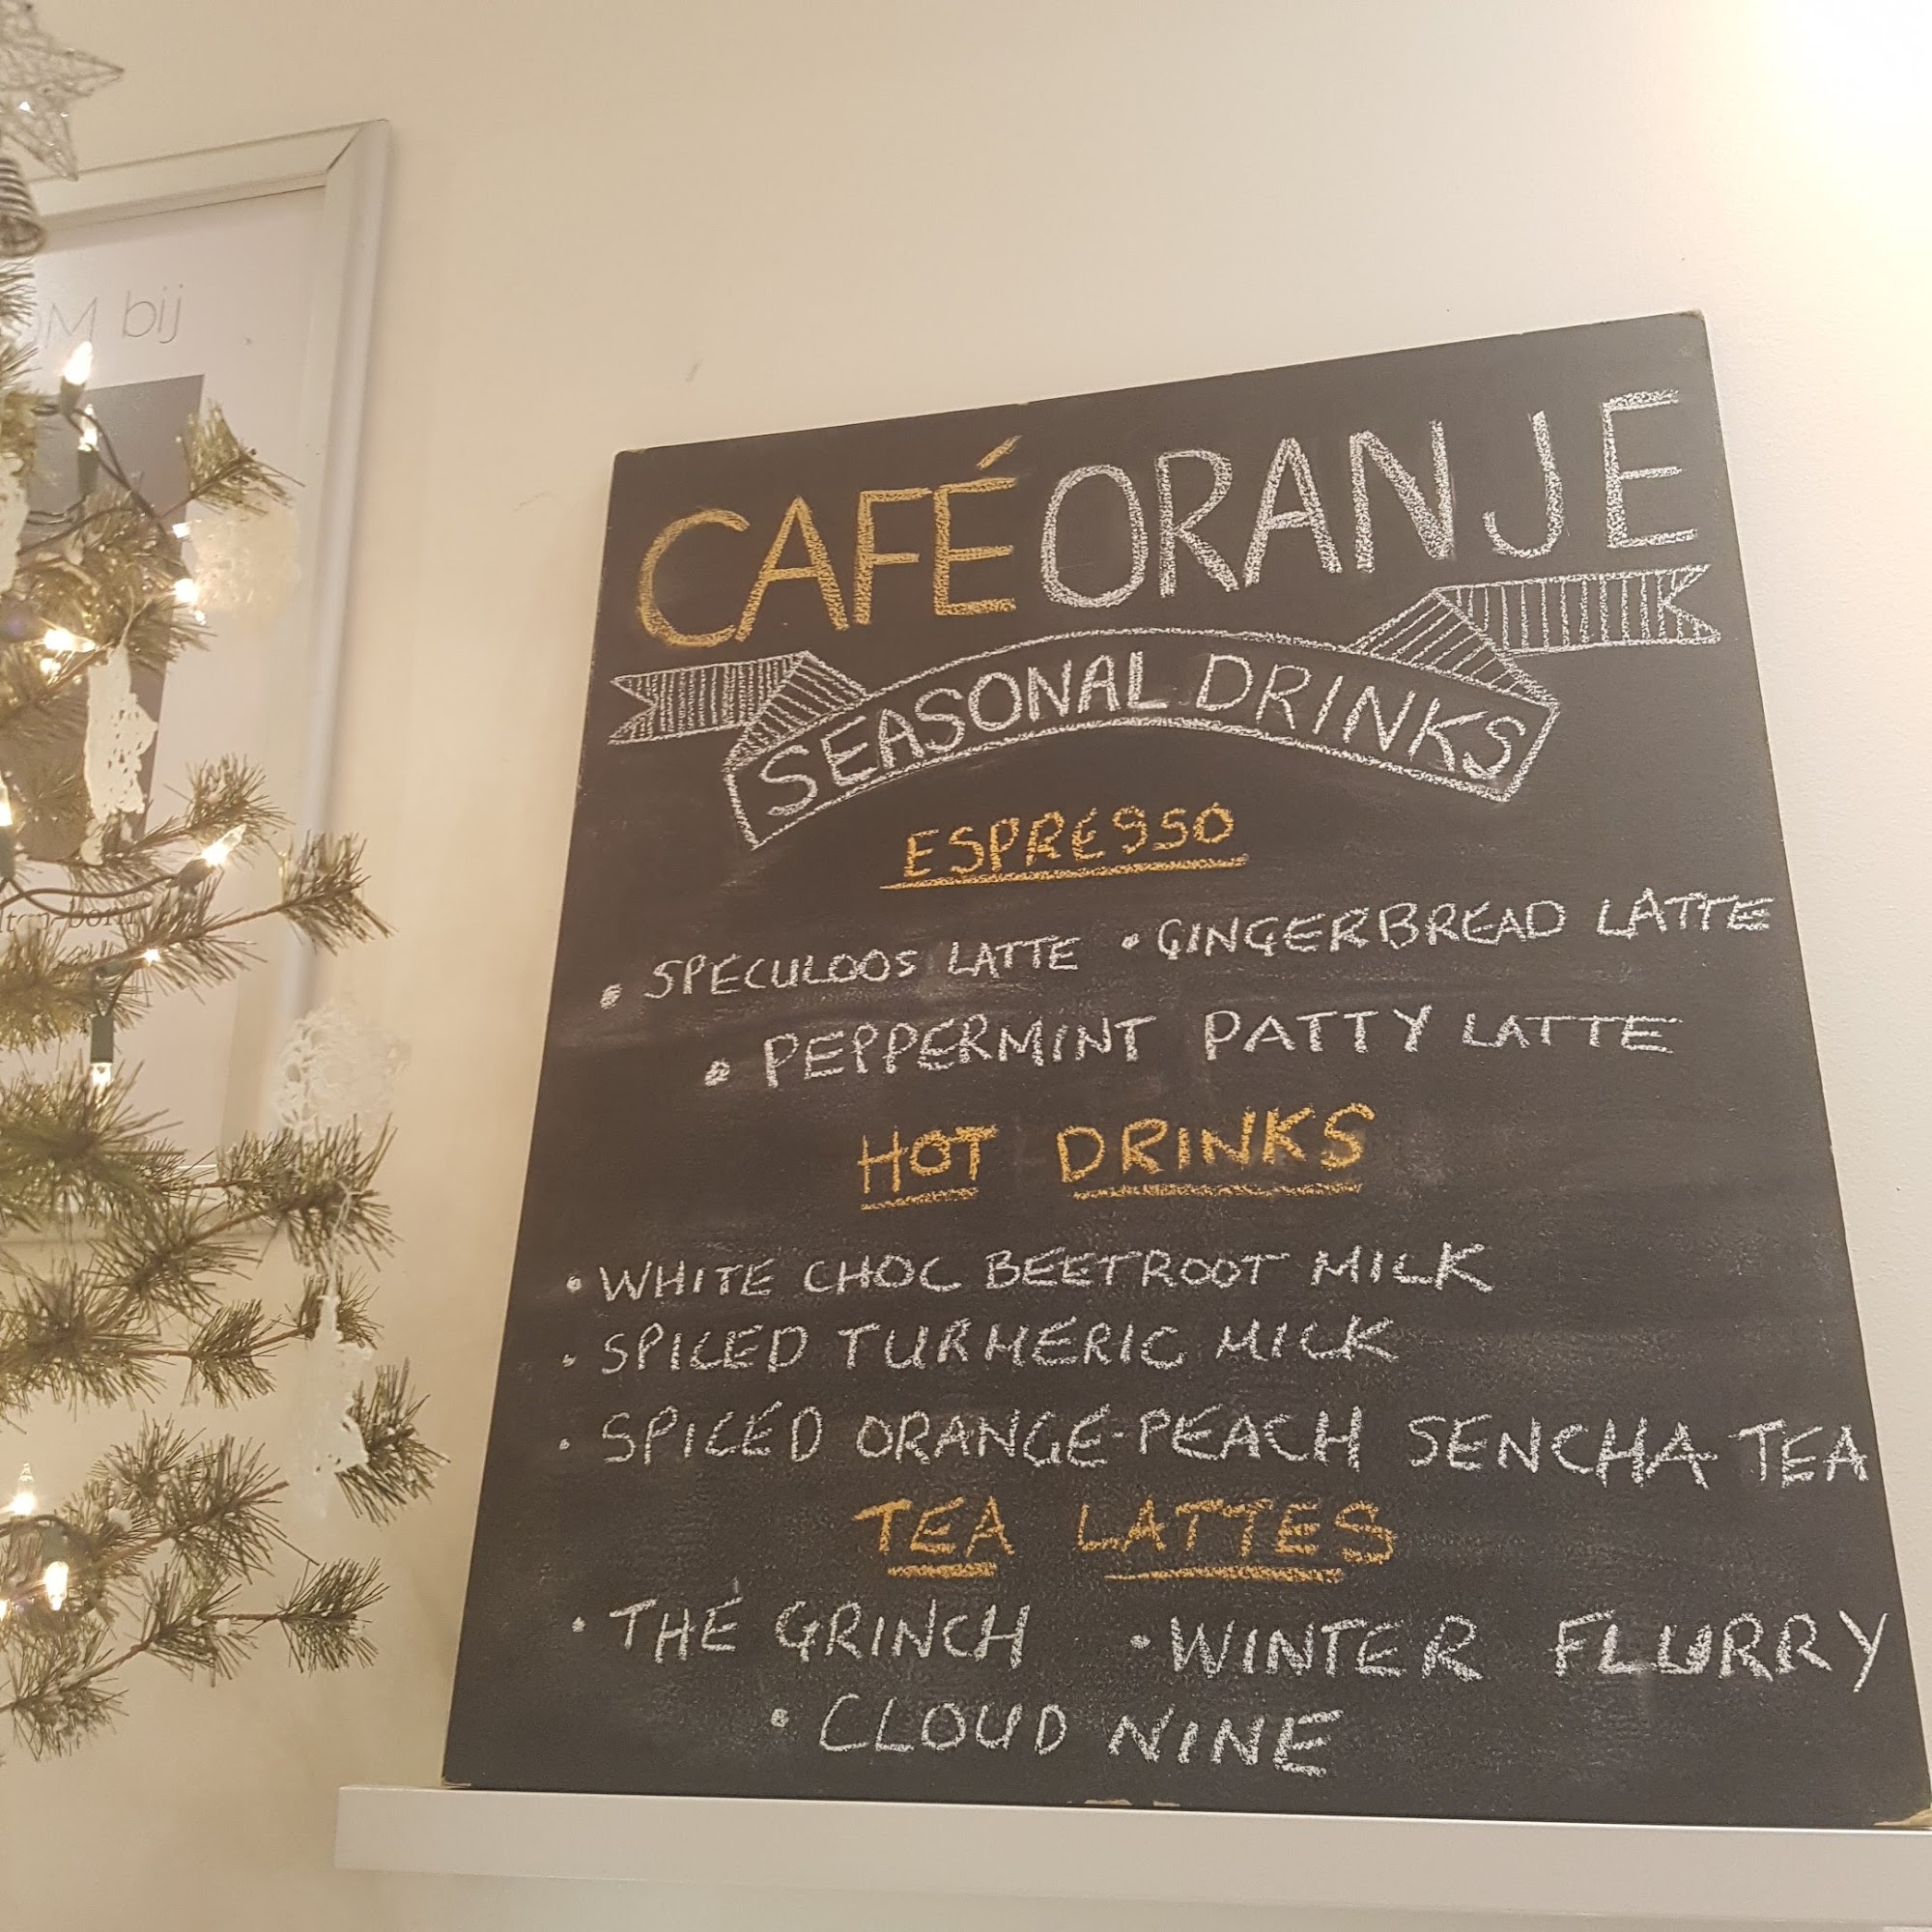 bij
CAFÉ ORANJE
SEASONAL DRINKS
ESPRESSO
• SPECULOOS LATTE • GINGERBREAD LATTE
• PEPPERMINT PATTY LATTE
HOT DRINKS
• WHITE CHOC BEETROOT MILK
• SPICED TURMERIC MILK
• SPICED ORANGE-PEACH SENCHA TEA
TEA LATTES
• THE GRINCH • WINTER FLURRY
• CLOUD NINE